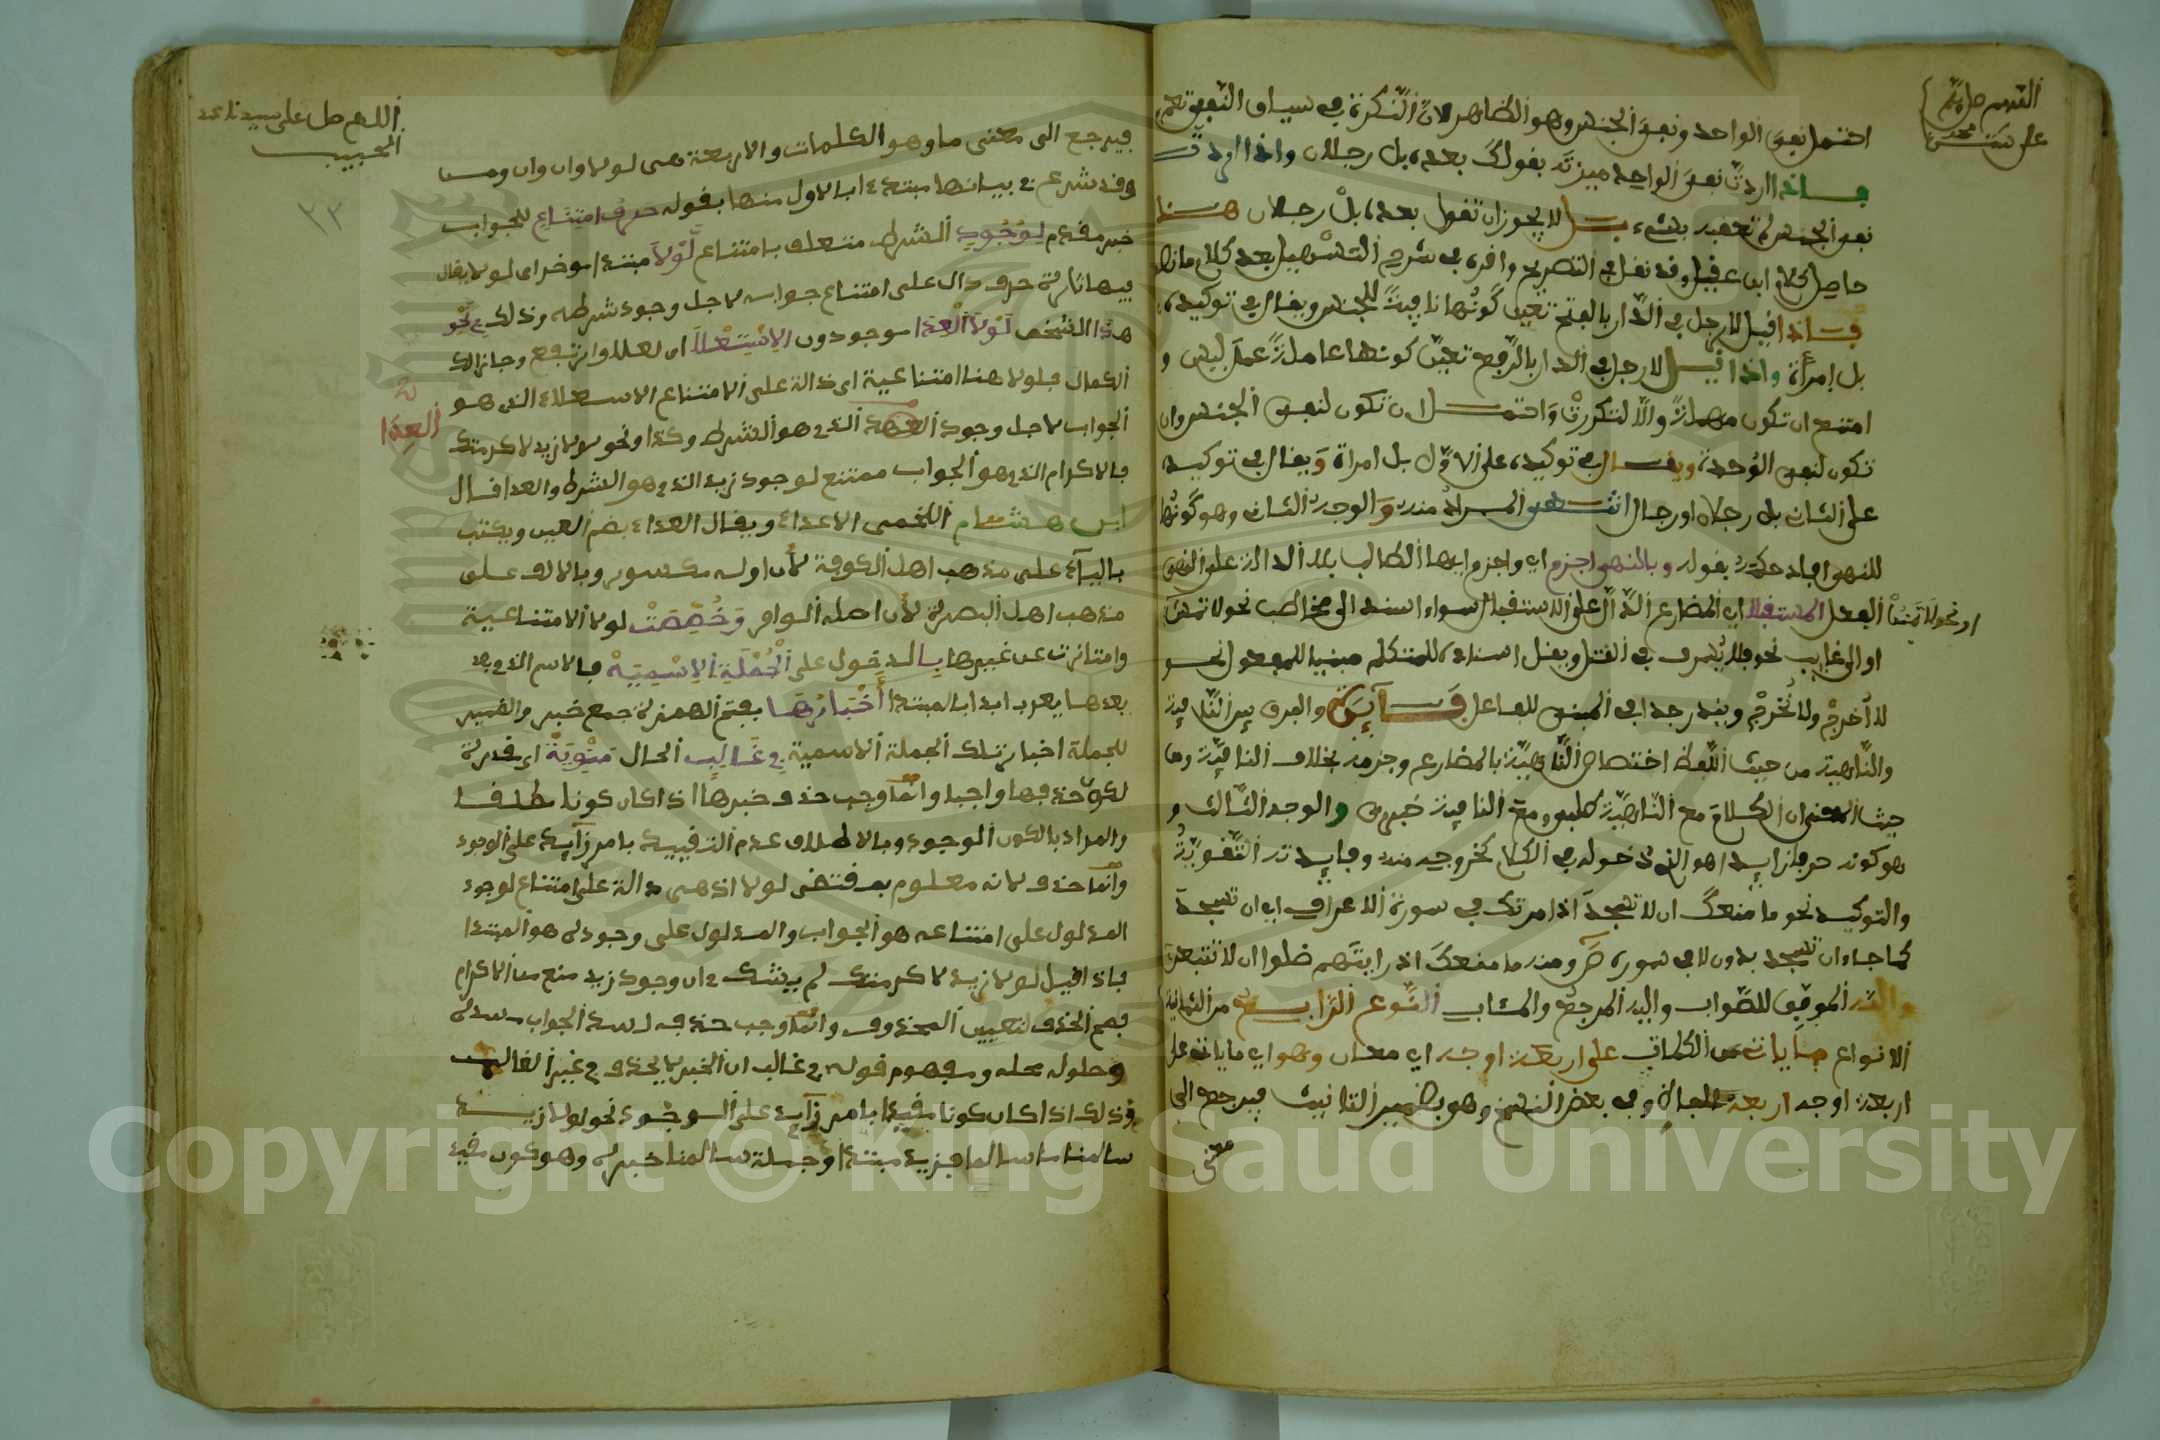 اللهم صل وسلم
على سيدنا محمد
احتمل نفي الواحد ونفي الجنس وهو الظاهر لان النكرة في سياق النفي تعم
فاذا اردت نفي الواحد ميزته بقولك بعده بل رجلان واذا اردت
نفي الجنس لم تقيد بشيء بل لا يجوز ان تقول بعده بل رجلان هذا
حاصل كلام ابن عقيل وقد نقل في التصريح وافره في شرح التسهيل بعد كلام ما نصه
فاذا قيل لا رجل في الدار بالفتح تعين كونها نافية للجنس ويقال في توكيده
بل امرأة واذا قيل لا رجل في الدار بالرفع تعين كونها عاملة عمل ليس و
امتنع ان تكون مهملة والا لتكررت واحتمل ان تكون لنفي الجنس وان
تكون لنفي الوحدة ويقال في توكيده على الاول بل امراة ويقال في توكيده
على الثاني بل رجلان او رجال انتهى المراد منه والوجه الثاني وهو كونها
للنهي افاد حكمه بقوله وبالنهي اجزم اي واجزم ايها الطالب بلا الدالة على النهي
الفعل المستقبلا اي المضارع الدال على الاستقبال سواء اسند الى مخاطب نحو لا تمنن
او نحو لا تمنن
او الى غايب نحو فلا يسرف في القتل ويقل اسناده للمتكلم مبنيا للمفعول نحو
لا أخرج ولا نخرج ويندر جدا في المبني للفاعل فايدة والفرق بين النافية
والناهية من حيث اللفظ اختصاص الناهية بالمضارع وجزمه بخلاف النافية ومن
حيث المعنى ان الكلام مع الناهية طلبي ومع النافية خبري والوجه الثالث و
هو كونه حرفا زايدا هو الذي دخوله في الكلام كخروجه منه وفايدته التقوية
والتوكيد نحو ما منعك ان لا تسجد اذ امرتك في سورة الاعراف اي ان تسجد
كما جاء ان تسجد بدون لا في سورة ص ومنه ما منعك اذ رايتهم ضلوا ان لا تتبعن
والله الموفق للصواب واليه المرجع والمئاب النوع الرابع من الثمانية
الانواع ما يات من الكلمات على اربعة اوجه اي معان وهو اي ما ياتي على
اربعة اوجه اربعة وفي بعض النسخ وهو بضمير التانيث فيرجع الى
معنى
اللهم صل على سيدنا محمد
الحبيب
٢٣
فيرجع الى معنى ما وهو الكلمات والاربعة هي لولا وان وان ومن
وقد شرع في بيانها مبتدءا بالاول منها بقوله حرف امتناع للجواب
خبر مقدم لوجود الشرط متعلق بامتناع لولا مبتدا موخر اي لولا يقال
فيها تارة حرف دال على امتناع جوابه لاجل وجود شرطه وذلك في نحو
هذا الشخص لولا العدا موجودون لاستعلا اي لعلا وارتفع وحاز الك
الكمال فلولا هنا امتناعية اي دالة على الامتناع الاستعلاء الذي هو
الجواب لاجل وجود الذي هو الشرط وكذا ونحو لولا زيد لاكرمتك
العدا
فالاكرام الذي هو الجواب ممتنع لوجود زيد الذي هو الشرط والعدا قال
ابن هشام اللخمي الاعداء ويقال العداء بضم العين ويكتب
بالياء على مذهب اهل الكوفة لان اوله مكسور وبالالف على
مذهب اهل البصرة لان اصله الواو وخصصت لولا الامتناعية
وامتازت عن غيرها بالدخول على الجملة الاسمية فالاسم الذي
بعدها يعرب ابدا بالمبتدا أخبارها بفتح الهمزة جمع خبر والضمير
للجملة اخبار تلك الجملة الاسمية في غالب الحال منوية اي مقدرة
لكون حذفها واجبا وانما وجب حذف خبرها اذا كان كونا مطلقا
والمراد بالكون الوجود وبالاطلاق عدم التقييد بامر زايد على الوجود
وانما حذف لانه معلوم بمقتضى لولا اذ هي دالة على امتناع لوجود
المدلول على امتناعه هو الجواب والمدلول على وجوده هو المبتدا
فاذا قيل لولا زيد لاكرمتك لم يشك في ان وجود زيد منع من الاكرام
فصح الحذف لتعيين المحذوف وانما وجب حذفه لسد الجواب مسده
وحلوله محله ومفهوم قوله في غالب ان الخبر لا يحذف في غير الغالب
وذلك اذا كان كونا مقيدا بامر زايد على الوجود نحو لولا زيد
سالمنا ما سالم فزيد مبتدا وجملة سالمنا خبره وهو كون مقيد